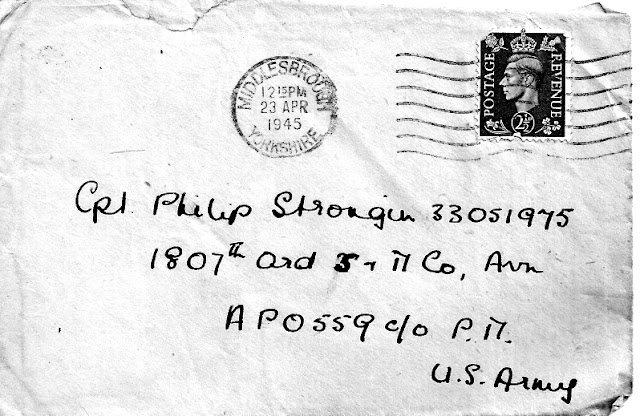 MIDDLESBROUGH
12 15 PM
23 APR
1945
YORKSHIRE
POSTAGE REVENUE
2½ᵈ
Cpl. Philip Strongin 33051975
1807th Ord S + M Co, Avn
APO 559 c/o P.M.
U.S. Army